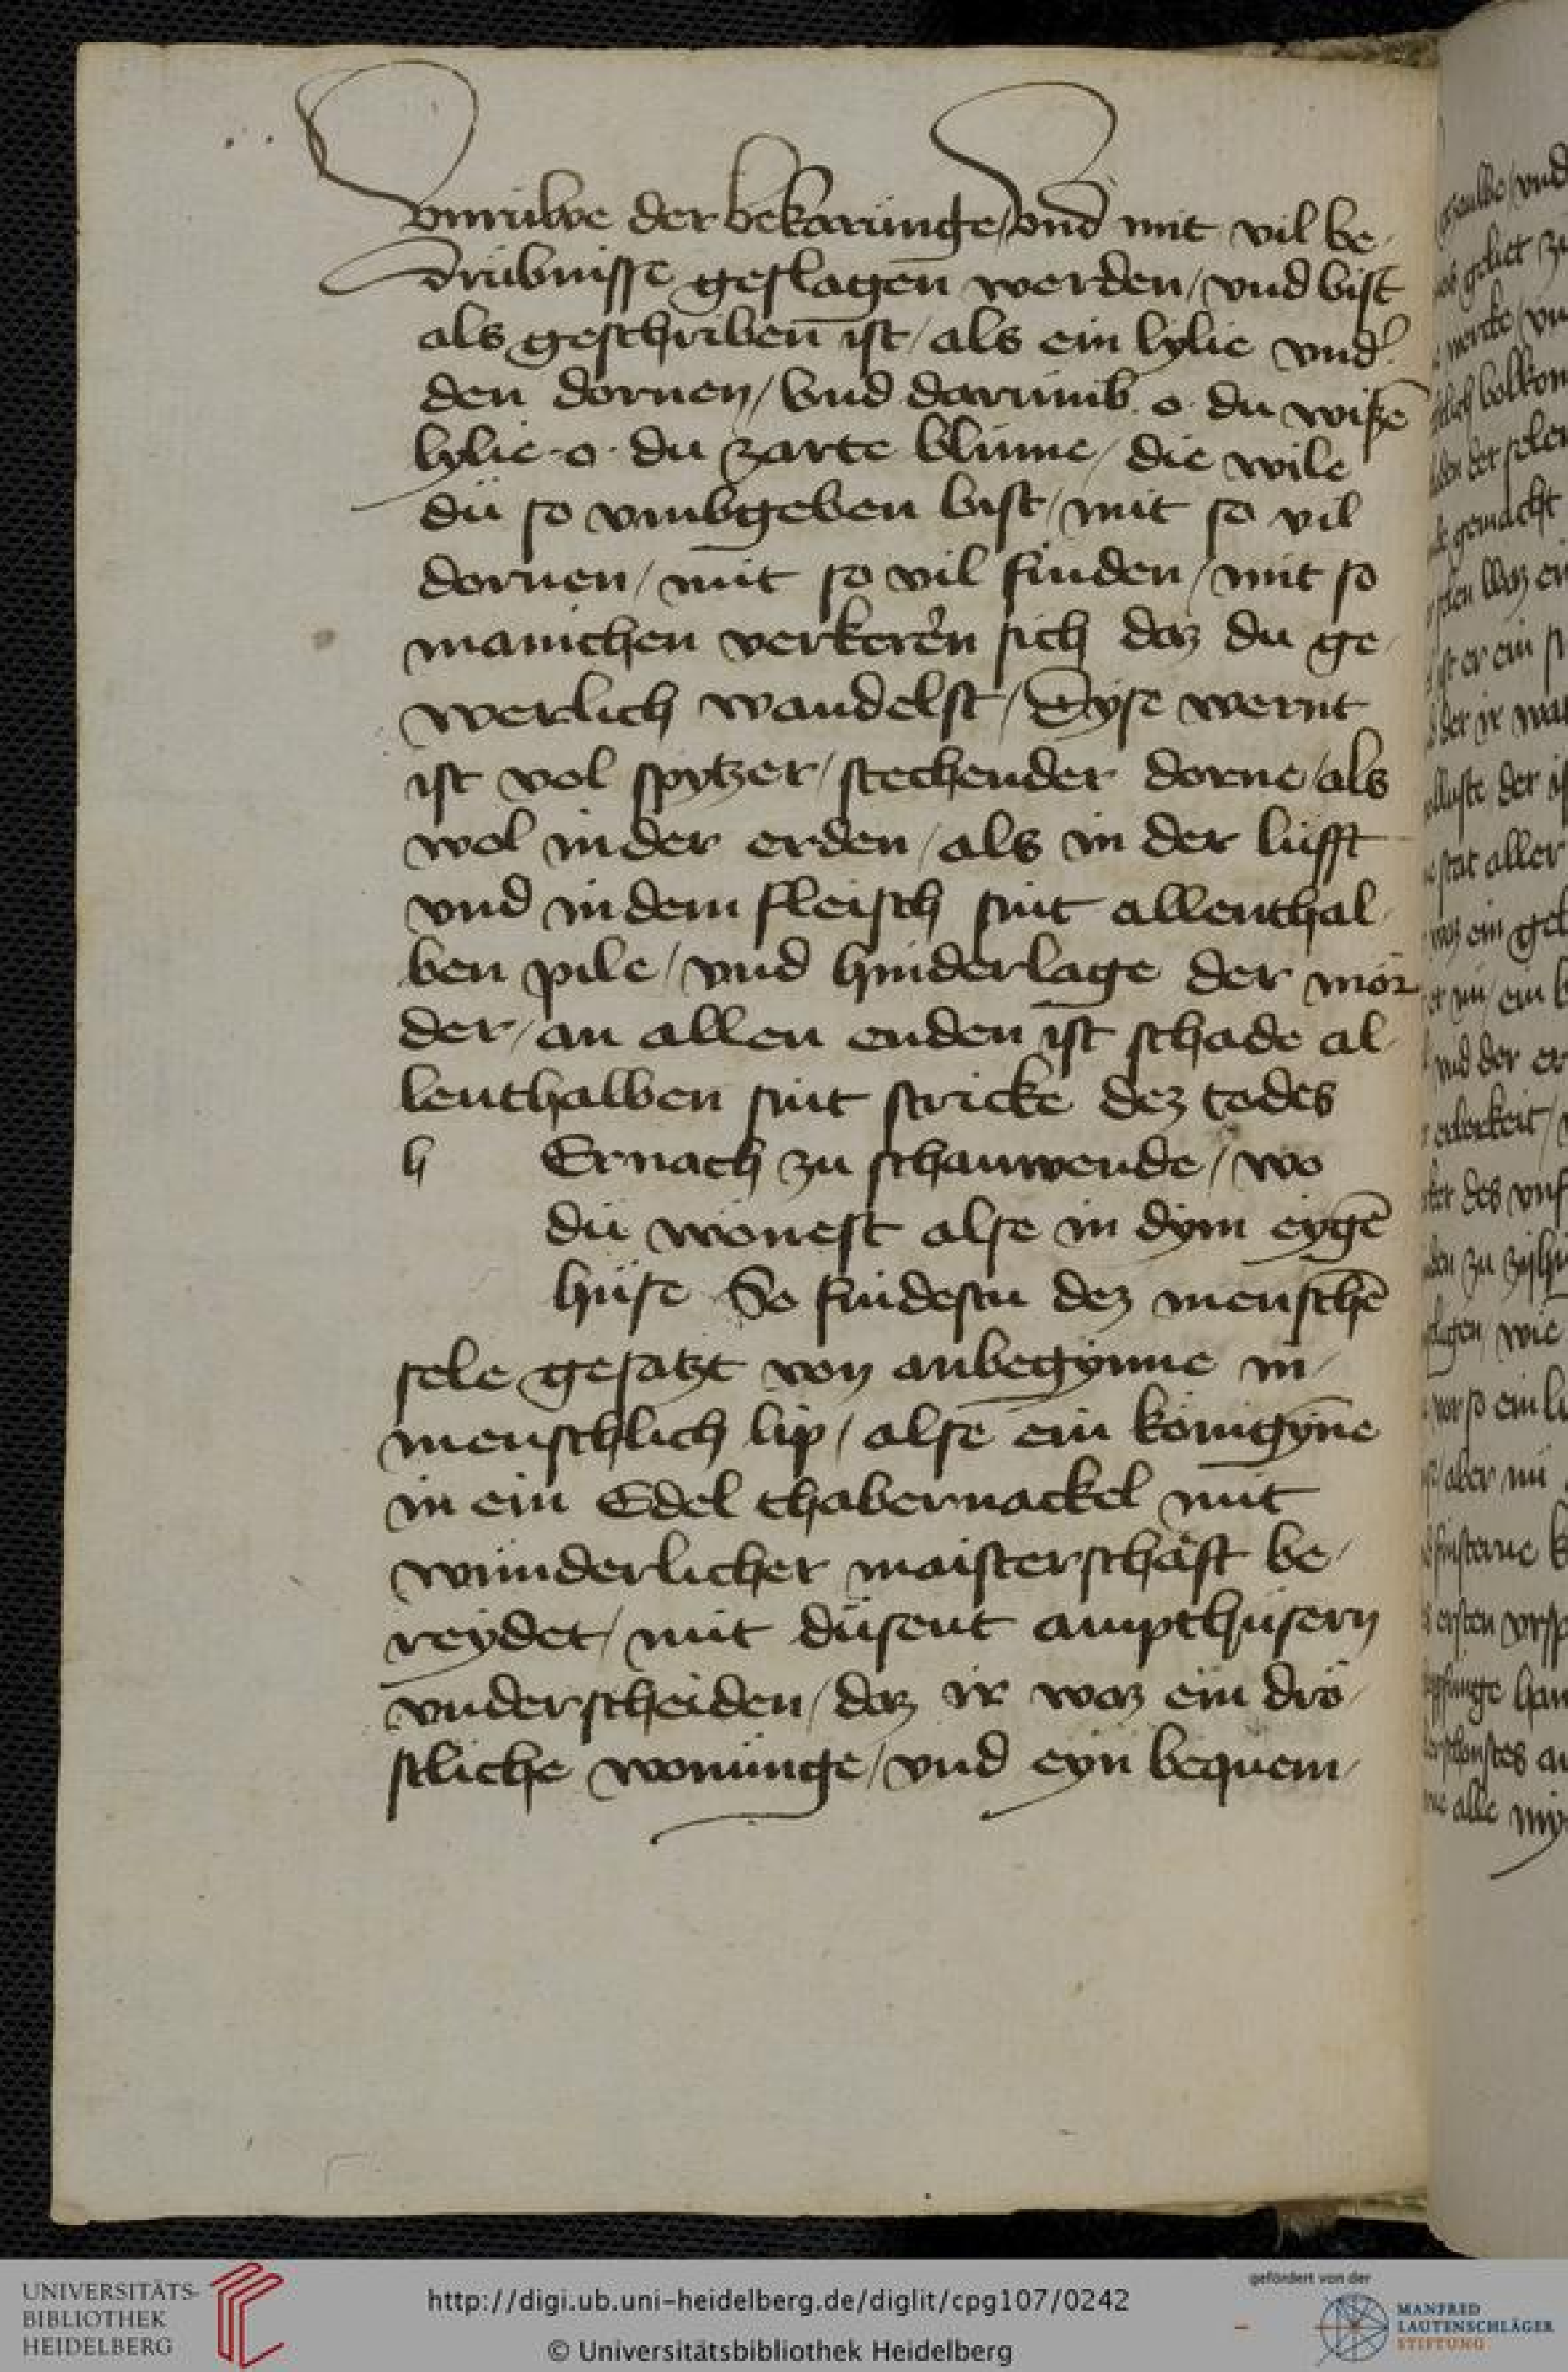 Vnruwe der bekarunge / vnd mit vil be-
drubnisse geslagen werden / vnd bist
als geschriben ist / als ein lylie vnd'
den dornen / vnd darumb o du wißē
lylie o du zarte blume / die wile
du so vmbgeben bist / mit so vil
dornen / mit so vil finden / mit so
manichen verkeren sich daz du ge-
werlich wandelst / Dyse wernt
ist vol spytzer / stechender dorne / als
wol in der erden / als in der lufft
vnd in dem fleisch sint allenthal-
ben pile / vnd hinderlage der mör
der / an allen enden ist schade al-
lenthalben sint stricke dez todes
h Ernach zu schauwende / wo
du wonest alse in dym eygē
huse So findestu dez menschē
sele gesatzt von anbegynne in
menschlich lip / alse ein konigÿne
in ein Edel thabernackel mit
wunderlicher maisterschaft be-
reydet / mit dusent ampthusern
vnderscheiden / daz ir waz ein drö-
stliche wonunge / vnd eyn bequem-
UNIVERSITÄTS-
BIBLIOTHEK
HEIDELBERG
http://digi.ub.uni-heidelberg.de/diglit/cpg107/0242
© Universitätsbibliothek Heidelberg
gefördert von der
MANFRED
LAUTENSCHLÄGER
STIFTUNG